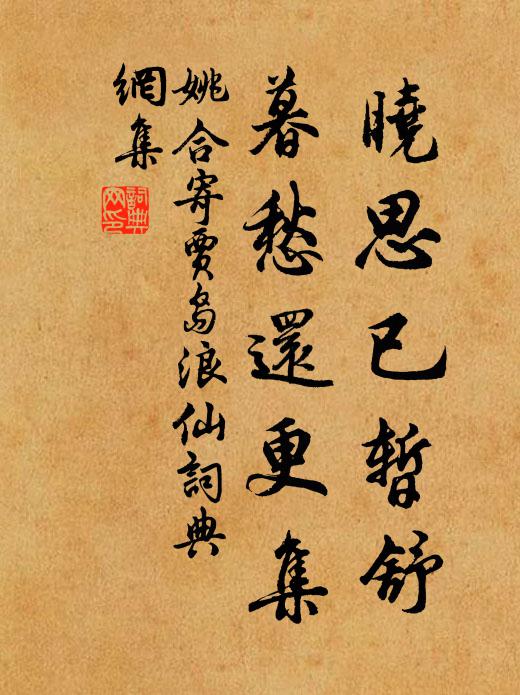 曉思已暫舒
暮愁還更集
姚合寄賈島浪仙詞典
網集
詞典網印